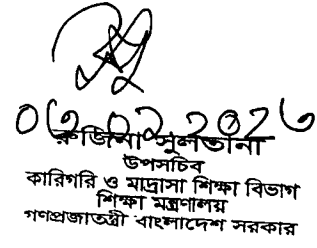 রুজিনা সুলতানা
উপসচিব
কারিগরি ও মাদ্রাসা শিক্ষা বিভাগ
শিক্ষা মন্ত্রণালয়
গণপ্রজাতন্ত্রী বাংলাদেশ সরকার